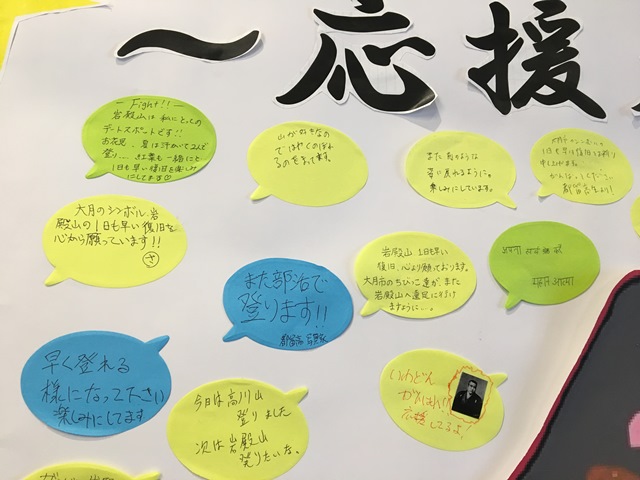 〜応援
— Fight!! —
岩殿山は私にとっての
デートスポットです!!
お花見、夏は汗かいて2人で
登り…紅葉も一緒に
1日も早い復旧を楽しみ
にしてます
山が好きなの
ではやくのぼれ
るのをまってます。
また前のような
姿に戻れるように。
楽しみにしています。
1日も早い復旧お祈り
申し上げます。
都留市より!
大月のシンボル岩
殿山の1日も早い復旧を
心から願っています!!
さ
また部活で
登ります!!
岩殿山 1日も早い
復旧、心より願っております。
大月市のちびっこ達が、また
岩殿山へ遠足に行け
ますように…。
अपना कार्य
महान आत्मा
早く登れる
様になって下さい
楽しみにしてます
今日は高川山
登りました
次は岩殿山
登りたいな。
いわどん
がんばれ!!
応援してるよ!